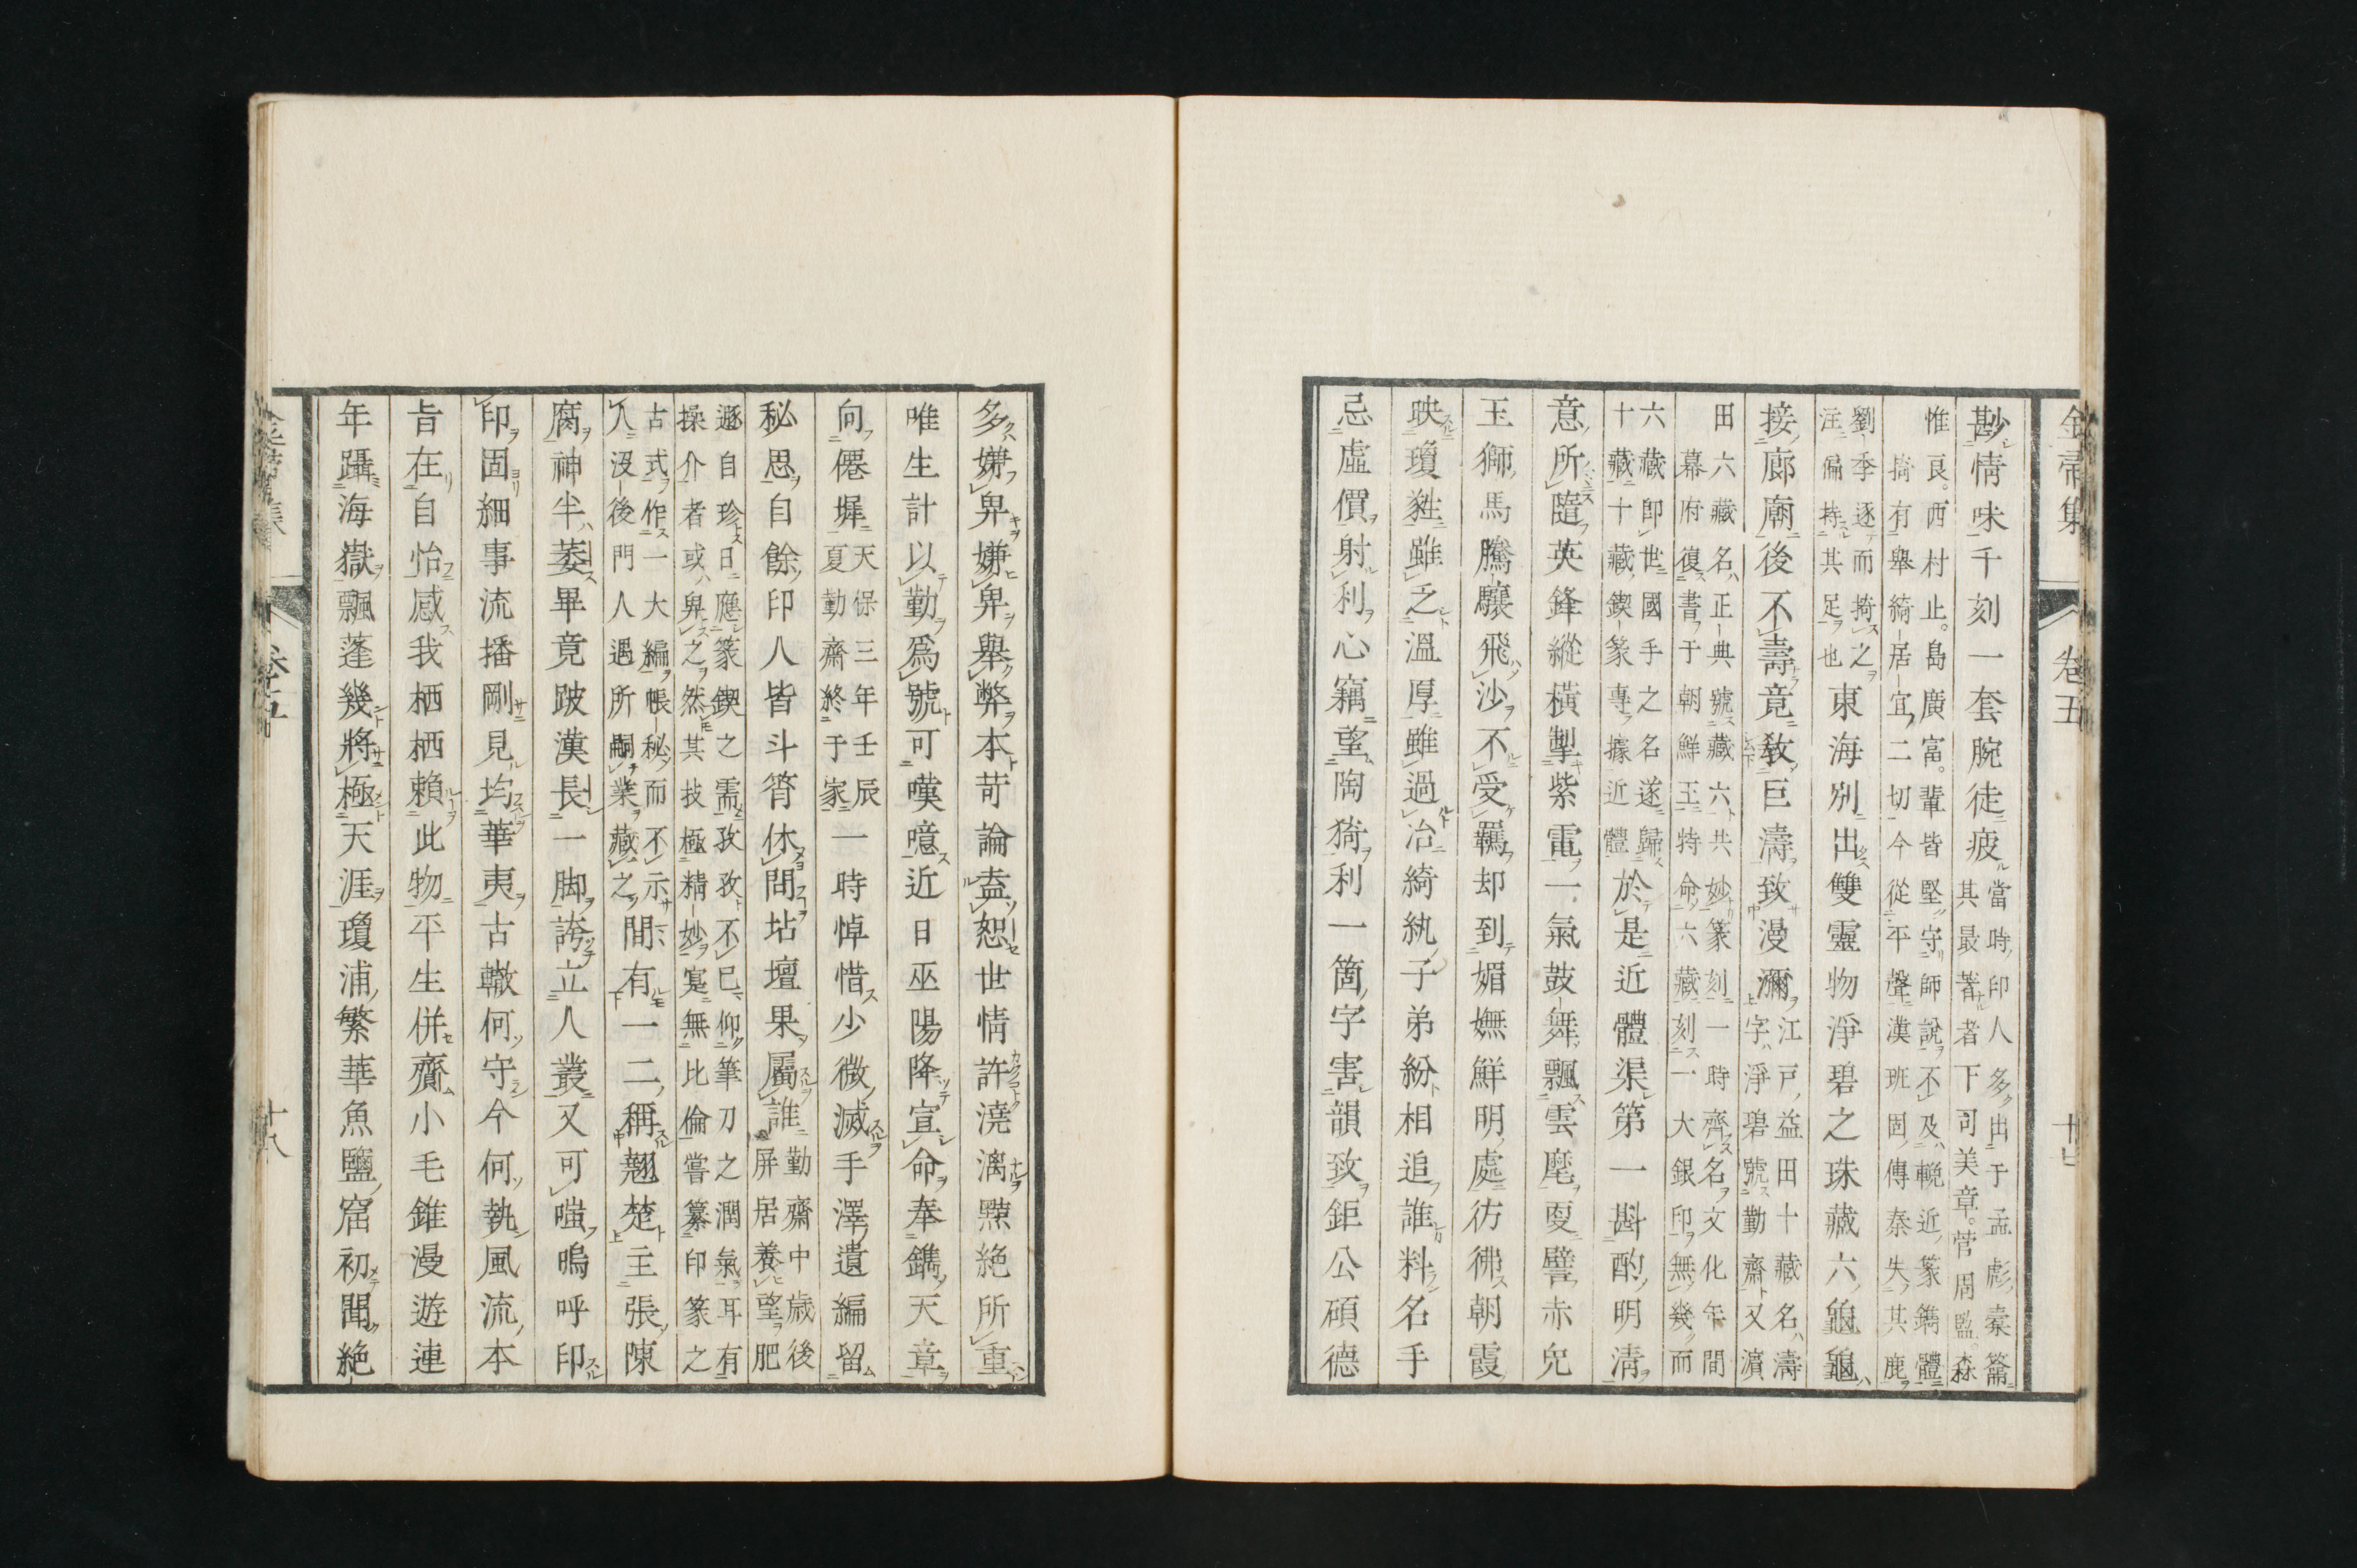 卷五
尠情味千刻一套腕徒疲
當時印人多出于孟彪
其最著者下司美章。菅周監。森
惟良。西村止。島廣富。輩皆堅守師說不及輓近篆鐫體
掎有舉綺居宜二切今從平聲漢班固傳秦失其鹿
劉季逐而掎之
注偏持其足也
東海別出雙靈物淨碧之珠藏六龜龜
接廊廟後不壽竟敎巨濤致漫瀰
江戸益田十藏名濤
字淨碧號勤齋又濱
田六藏名正典號藏六共妙篆刻一時齊名文化年間
幕府復書于朝鮮王特命六藏刻一大銀印無幾而
六藏卽世國手之名遂歸
十藏十藏鍥篆專據近體
於是近體渠第一斟酌明淸
意所隨英鋒縱橫掣紫電一氣鼓舞飄雲麾更譬赤兒
玉獅馬騰驤飛沙不受羈却到媚嫵鮮明處彷彿朝霞
映瓊甤雖乏溫厚雖過冶綺紈子弟紛相追誰料名手
忌虛價射利心竊望陶猗利一箇字害韻致鉅公碩德
多嫌卑嫌卑舉弊本苛論盍恕世情許澆漓點絶所重
唯生計以勤爲號可嘆噫近日巫陽降宣命奉鐫天章
向僊墀
天保三年壬辰
夏勤齋終于家
一時悼惜少微滅手澤遺編留
秘思自餘印人皆斗筲休問坫壇果屬誰
勤齋中歲後
屏居養望肥
遯自珍日應篆鍥之需孜孜不已仰筆刀之潤氣耳有
操介者或臾之然其技極精妙寔無比倫嘗纂印篆之
古式作一大編帳秘而不示
人沒後門人遇所嗣業藏之
間有一二稱翹楚主張陳
腐神半萎畢竟跛漢長一脚誇立人叢又可嗤嗚呼印
印固細事流播剛見均華夷古轍何守今何執風流本
旨在自怡感我栖栖賴此物平生併齎小毛錐漫遊連
年躡海嶽飄蓬幾將極天涯瓊浦繁華魚鹽窟初聞絶